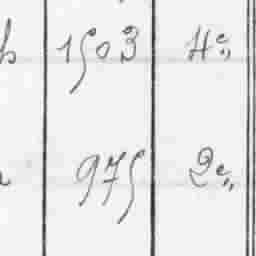 1503 4e„
975 2e„